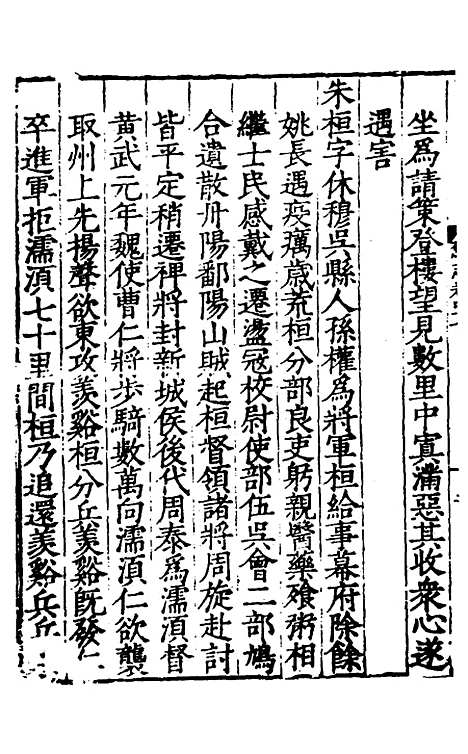 坐爲請策登樓望見數里中寘滿惡其收衆心遂
遇害
朱桓字休穆吳縣人孫權爲將軍桓給事幕府除餘
姚長遇疫癘歲荒桓分部良吏躬親醫藥飱粥相
繼士民感戴之遷盪冦校尉使部伍吳會二部鳩
合遺散丹陽鄱陽山賊起桓督領諸將周旋赴討
皆平定稍遷裨將封新城侯後代周泰爲濡湏督
黄武元年魏使曹仁將步騎數萬向濡湏仁欲襲
取州上先揚聲欲東攻羡谿桓分兵羡谿旣發仁
卒進軍拒濡湏七十里間桓乃追還羡谿兵兵